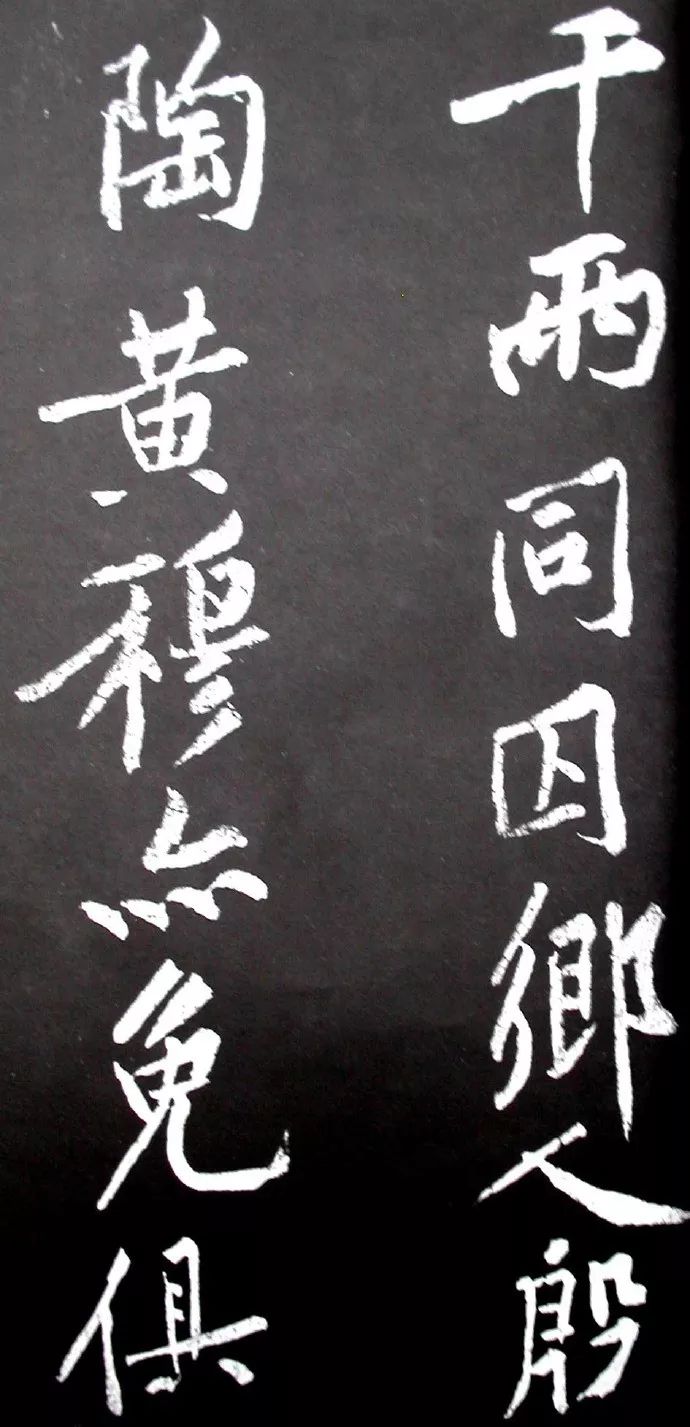 千兩同囚鄉人殷
陶黃穆亦免俱